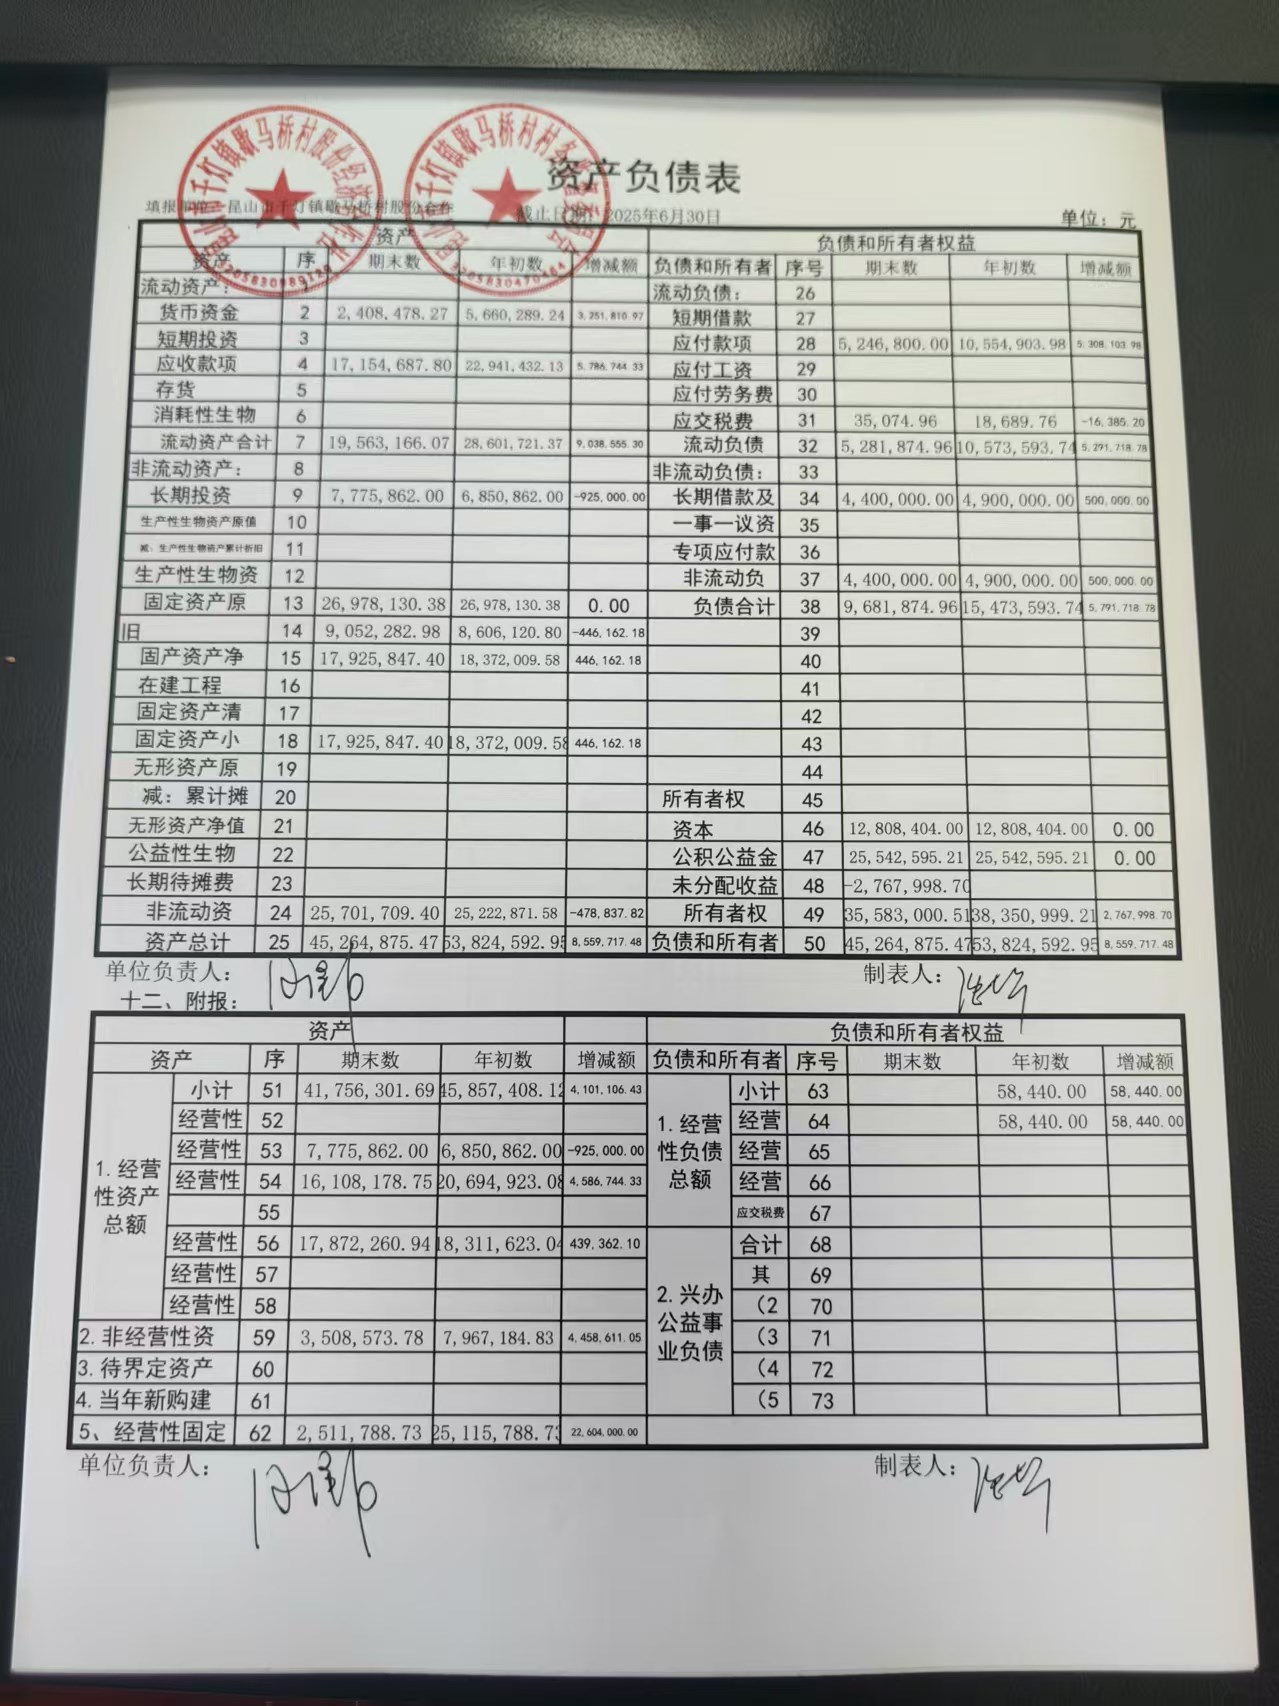 资产负债表
填报单位：昆山市千灯镇歇马桥村股份合作 截止日期：2025年6月30日 单位：元
资产 负债和所有者权益
资产 序 期末数 年初数 增减额 负债和所有者 序号 期末数 年初数 增减额
流动资产： 1 流动负债： 26
货币资金 2 2,408,478.27 5,660,289.24 3,251,810.97 短期借款 27
短期投资 3 应付款项 28 5,246,800.00 10,554,903.98 5,308,103.98
应收款项 4 17,154,687.80 22,941,432.13 5,786,744.33 应付工资 29
存货 5 应付劳务费 30
消耗性生物 6 应交税费 31 35,074.96 18,689.76 -16,385.20
流动资产合计 7 19,563,166.07 28,601,721.37 9,038,555.30 流动负债 32 5,281,874.96 10,573,593.74 5,291,718.78
非流动资产： 8 非流动负债： 33
长期投资 9 7,775,862.00 6,850,862.00 -925,000.00 长期借款及 34 4,400,000.00 4,900,000.00 500,000.00
生产性生物资产原值 10 一事一议资 35
减：生产性生物资产累计折旧 11 专项应付款 36
生产性生物资 12 非流动负 37 4,400,000.00 4,900,000.00 500,000.00
固定资产原 13 26,978,130.38 26,978,130.38 0.00 负债合计 38 9,681,874.96 15,473,593.74 5,791,718.78
旧 14 9,052,282.98 8,606,120.80 -446,162.18 39
固产资产净 15 17,925,847.40 18,372,009.58 446,162.18 40
在建工程 16 41
固定资产清 17 42
固定资产小 18 17,925,847.40 18,372,009.58 446,162.18 43
无形资产原 19 44
减：累计摊 20 所有者权 45
无形资产净值 21 资本 46 12,808,404.00 12,808,404.00 0.00
公益性生物 22 公积公益金 47 25,542,595.21 25,542,595.21 0.00
长期待摊费 23 未分配收益 48 -2,767,998.70
非流动资 24 25,701,709.40 25,222,871.58 -478,837.82 所有者权 49 35,583,000.51 38,350,999.21 2,767,998.70
资产总计 25 45,264,875.47 53,824,592.95 8,559,717.48 负债和所有者 50 45,264,875.47 53,824,592.95 8,559,717.48
单位负责人： 制表人：
十二、附报：
资产 负债和所有者权益
资产 序 期末数 年初数 增减额 负债和所有者 序号 期末数 年初数 增减额
1.经营性资产总额 小计 51 41,756,301.69 45,857,408.12 4,101,106.43 1.经营性负债总额 小计 63 58,440.00 58,440.00
经营性 52 经营 64 58,440.00 58,440.00
经营性 53 7,775,862.00 6,850,862.00 -925,000.00 经营 65
经营性 54 16,108,178.75 20,694,923.08 4,586,744.33 经营 66
55 应交税费 67
经营性 56 17,872,260.94 18,311,623.04 439,362.10 2.兴办公益事业负债 合计 68
经营性 57 其 69
经营性 58 （2 70
2.非经营性资 59 3,508,573.78 7,967,184.83 4,458,611.05 （3 71
3.待界定资产 60 （4 72
4.当年新购建 61 （5 73
5、经营性固定 62 2,511,788.73 25,115,788.73 22,604,000.00
单位负责人： 制表人：